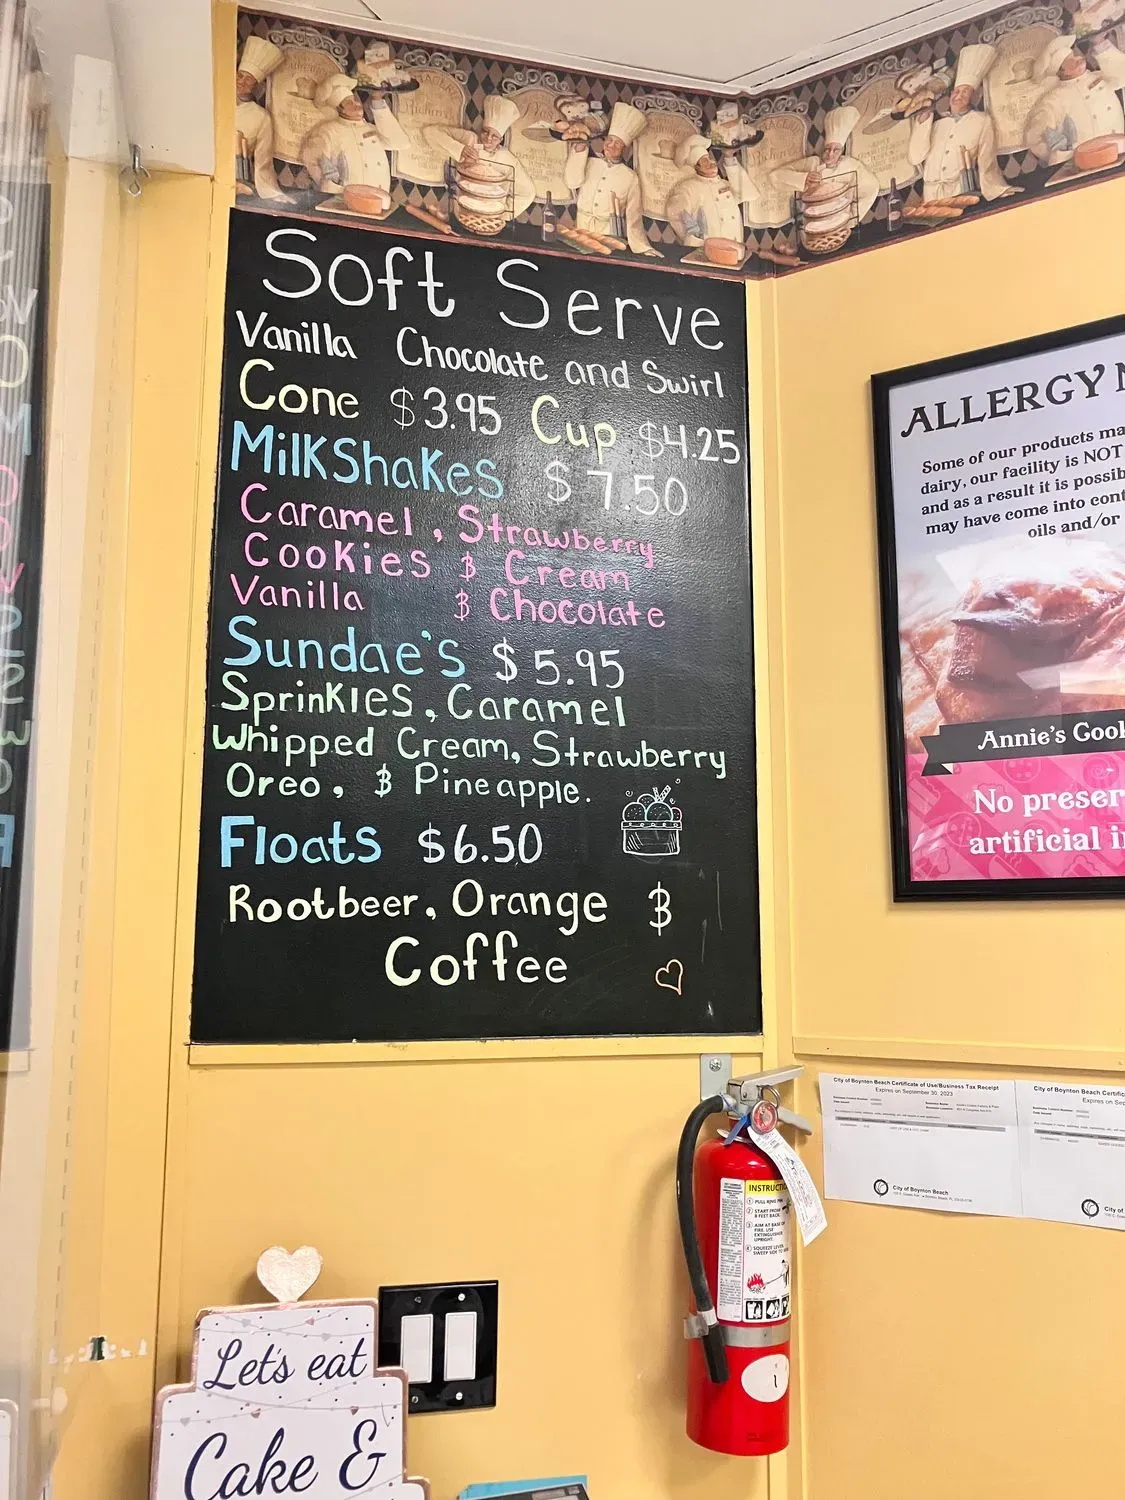 Soft Serve
Vanilla Chocolate and Swirl
Cone $3.95 Cup $4.25
MilkShakes $7.50
Caramel, Strawberry
Cookies & Cream
Vanilla & Chocolate
Sundae's $5.95
Sprinkles, Caramel
Whipped Cream, Strawberry
Oreo, & Pineapple.
Floats $6.50
Rootbeer, Orange &
Coffee
ALLERGY
Some of our products ma
dairy, our facility is NOT
and as a result it is possib
may have come into cont
oils and/or
Annie's Cook
No preser
artificial i
City of Boynton Beach Certificate of Use/Business Tax Receipt
Expires on September 30, 2023
City of Boynton Beach
City of Boynton Beach Certific
Expires on Sep
City of
INSTRUCTI
1 PULL RING PIN
2 START FROM
8 FEET BACK.
3 AIM AT BASE OF
FIRE. USE
EXTINGUISHER
UPRIGHT.
4 SQUEEZE LEVER.
SWEEP SIDE TO
Let's eat
Cake &